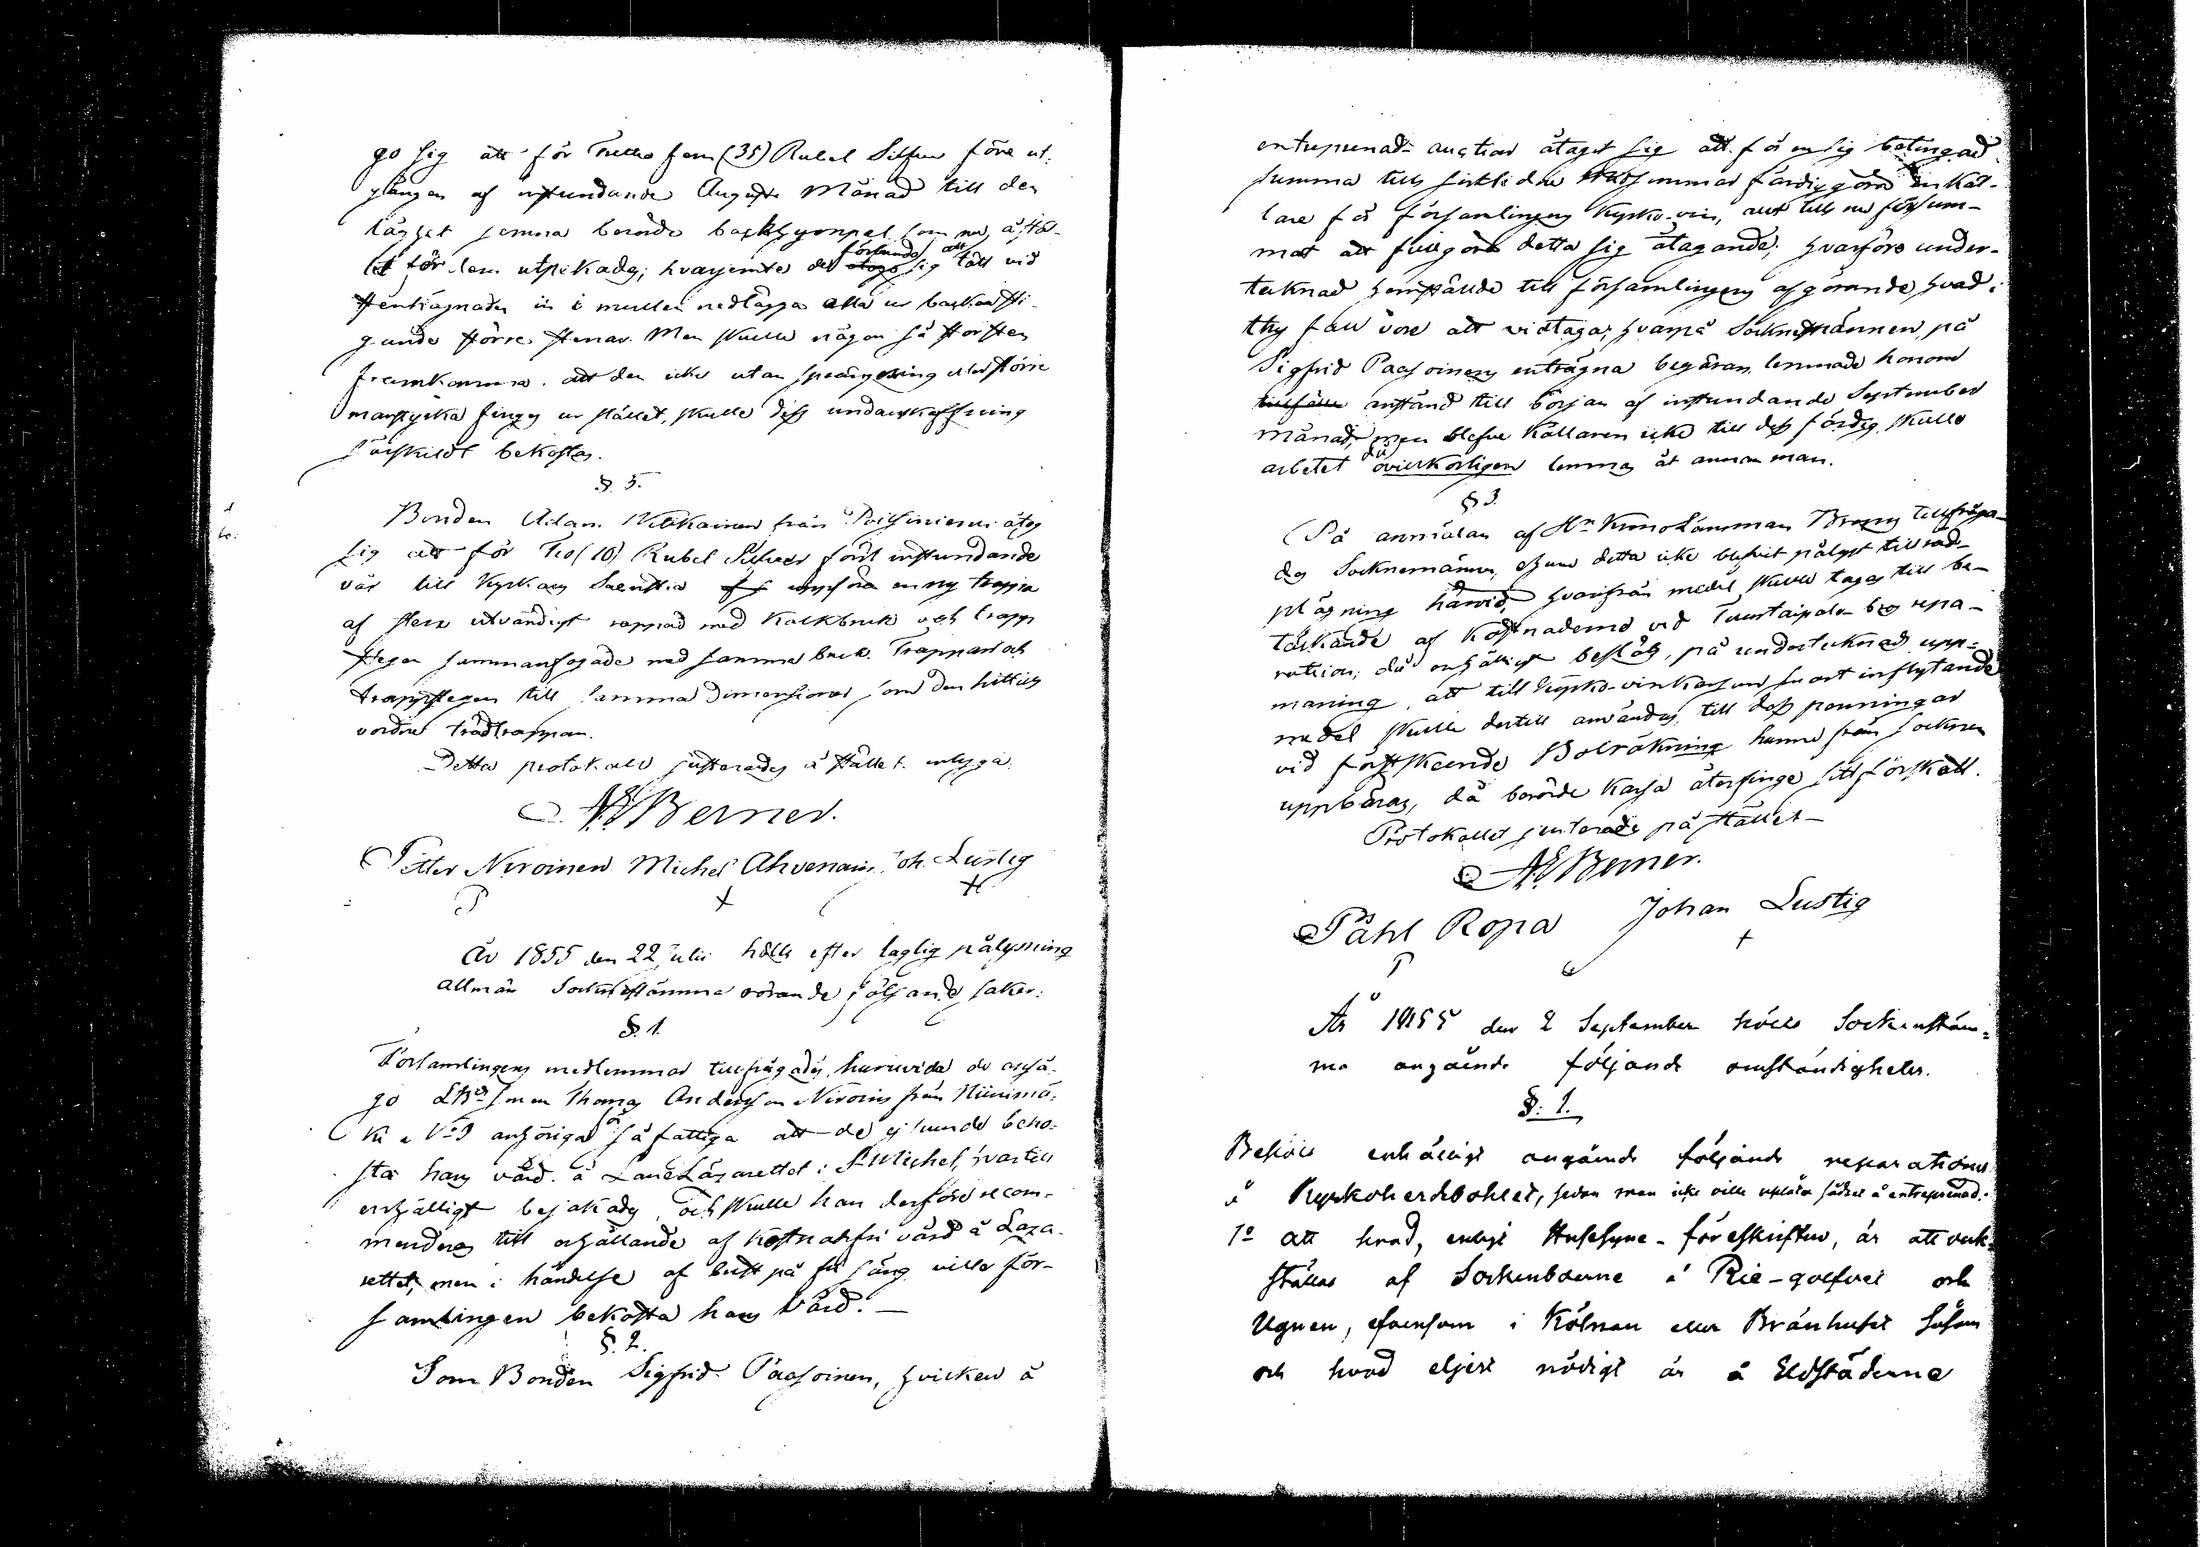 go sig att för Trettio fem (35) Rubel Silfver före ut-
gången af instundande Augusti Månad till den
läget jemna berörde backsgompel som nu, å stäl-
let för dem utpikades; hvarjemte de förbundo sig att tätt vid
stenhägnaden in i mullen nedlägga alla ur backen sti-
gande större stenar. Men skulle någon så stor sten
framkomma att den icke utan sprängning eller större
manstyrka finge ur stället, skulle dess undanskaffning
särskildt bekostas.
§. 5.
Bonden Adam Wilikainen från åtog
sig att för Tio (10) Rubel Silfver först instundande
vår till Kyrkans Sacristia uppföra en ny trappa
af sten utvändigt rappad med Kalkbruk och trapp
stegen sammanfogade med samma bruk. Trappan och
trappstegen till samma dimensioner som den hittills
vordne trädtrappan.
Detta protokoll justerades å stället intyga
A Berner.
Petter Niroinen Michel Ahvenain. Joh. Lustig
År 1855 den 22 Julii hölls efter laglig pålysning
allmän Sockenstämma rörande följande saker:
§. 1.
Församlingens medlemmar tillfrågades, huruvida de anså-
go Thomas Andersson Niroins från Niinimä-
ki Nº 9 anhöriga så fattiga att de ej kunde beko-
sta hans vård å Läns Lazarettet i St Michel, hvartill
enhälligt bejakades, och skulle han derföre recom-
menderas till erhållande af kostnadsfri vård å Laza-
rettet, men i händelse af brist på fri säng ville för-
samlingen bekosta hans vård. —
§. 2.
Som Bonden Sigfrid Paasoinen, hvilken å
entreprenad-auction åtagit sig att för en sig betingad
summa till sistliden Midsommar färdiggöra en Käl-
lare för församlingens Kyrko-vin, allt till nu försum-
mat att fullgöra detta sig åtagande; hvarföre under-
tecknad hemställde till församlingens afgörande hvad i
thy fall vore att vidtaga; hvarpå Sockenemännen, på
Sigfrid Paasoinens enträgna begäran lemnade honom
anstånd till början af instundande September
månad, men blefve Källaren icke till dess färdig, skulle
arbetet då ovilkorligen lemnas åt annan man.
§ 3.
På anmälan af Hr Krono Länsman Brenns tillfråga-
des Sockenemännen, ehuru detta icke blifvit pålyst till råd-
plägning härvid, hvarifrån medel skulle tagas till be-
täckande af kostnaderne vid Tuustaipale bro repa-
ration; då enhälligt beslöts, på undertecknads upp-
maning, att till Kyrko-vinkassan snart inflytande
medel skulle dertill användas, till dess penningar
vid först skeende Bolräkning hunne från Socknen
uppbäras, då berörde Kassa återfinge sitt förskott.
Protokollet justerades på stället —
A Berner.
Påhl Ropa Johan Lustig
År 1855 den 2 September hölls Sockenstäm-
ma angående följande omständigheter.
§: 1.
Beslöts enhälligt angående följande reparationer
å Kyrkoherdebohlet, sedan man icke ville upplåta sådant å entreprenad:
1º att hvad, enligt Husesyns-föreskriften, är att verk-
ställas af Sockenboerne å Rie-golfvet och
Ugnen, äfvensom i Kölnan eller Brånhuset såsom
och hvad eljest nödigt är å Eldstäderna